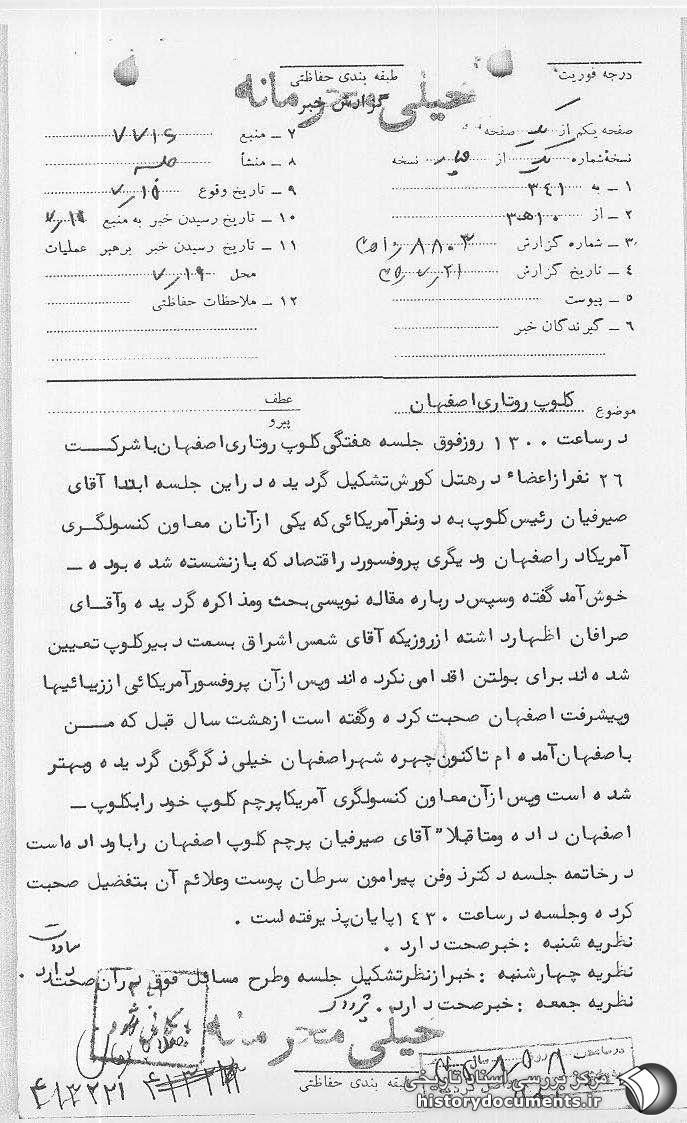 درجه فوریت
طبقه بندی حفاظتی
خیلی محرمانه
گزارش خبر
صفحه یکم از یک صفحه
نسخهٔ شماره یک از چهار نسخه
۱ ـ به ۳۴۱
۲ ـ از ۱۰ه۳
۳ ـ شماره گزارش ۸۸۰۳
۴ ـ تاریخ گزارش
۵ ـ پیوست
۶ ـ گیرندگان خبر
۷ ـ منبع
۸ ـ منشأ جلسه
۹ ـ تاریخ وقوع
۱۰ ـ تاریخ رسیدن خبر به منبع
۱۱ ـ تاریخ رسیدن خبر برهبر عملیات
محل
۱۲ ـ ملاحظات حفاظتی
موضوع کلوپ روتاری اصفهان
عطف
پیرو
درساعت ۱۳۰۰ روزفوق جلسه هفتگی کلوپ روتاری اصفهان باشرکت
۲۶ نفرازاعضاء درهتل کورش تشکیل گردیده دراین جلسه ابتدا آقای
صیرفیان رئیس کلوپ به دونفرآمریکائی که یکی ازآنان معاون کنسولگری
آمریکادراصفهان ودیگری پروفسوردراقتصادکه بازنشسته شده بوده ـ
خوش آمدگفته وسپس درباره مقاله نویسی بحث ومذاکره گردیده وآقای
صرافان اظهارداشته ازروزیکه آقای شمس اشراق بسمت دبیرکلوپ تعیین
شده اند برای بولتن اقدامی نکرده اند وپس ازآن پروفسورآمریکائی اززیبائیها
وپیشرفت اصفهان صحبت کرده وگفته است ازهشت سال قبل که من
باصفهان آمده ام تاکنون چهره شهراصفهان خیلی دگرگون گردیده وبهتر
شده است وپس ازآن معاون کنسولگری آمریکاپرچم کلوپ خودرابکلوپ ـ
اصفهان داده ومتاقبلا" آقای صیرفیان پرچم کلوپ اصفهان راباوداده است
درخاتمه جلسه دکترذوفن پیرامون سرطان پوست وعلائم آن بتفضیل صحبت
کرده وجلسه درساعت ۱۴۳۰ پایان پذیرفته است .
نظریه شنبه : خبرصحت دارد .
نظریه چهارشنبه : خبرازنظرتشکیل جلسه وطرح مسائل فوق درآن صحت دارد .
نظریه جمعه : خبرصحت دارد .
خیلی محرمانه
طبقه بندی حفاظتی
۴۱۳۲۲۱
مرکز بررسی اسناد تاریخی
historydocuments.ir